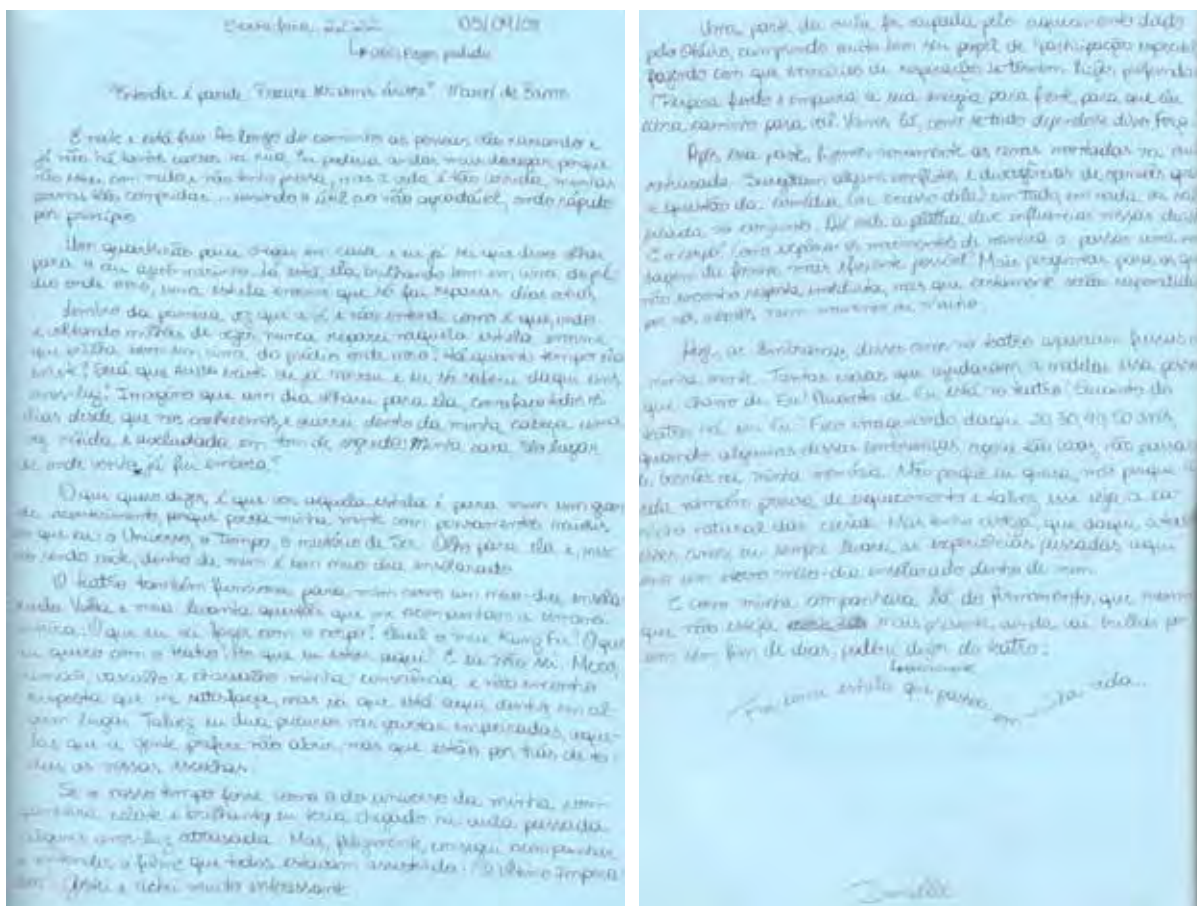 05/09/08
"Entender é parede. Procure ser uma árvore." Manoel de Barros
É noite e está frio. Ao longo do caminho as pessoas vão rareando e
já não há tantos carros na rua. Eu poderia andar mais devagar, porque
não estou com medo e não tenho pressa, mas a vida é tão corrida, minhas
pernas tão compridas unindo o útil ao não agradável, ando rápido
por princípio.
Um quarteirão para chegar em casa e eu já sei que devo olhar
para o céu azul-marinho. Lá está ela, brilhando bem em cima do pré-
dio onde moro, uma estrela enorme que só fui reparar dias atrás.
Lembro da primeira vez que a vi e não entendo como é que, indo
e voltando milhas de vezes, nunca reparei naquela estrela enorme,
que brilha bem em cima do prédio onde moro! Há quanto tempo ela
existe? Será que ainda existe ou já morreu e eu só saberei daqui uns
anos-luz? Imagino que um dia olharei para ela, como faço todos os
dias desde que nos conhecemos, e ouvirei dentro da minha cabeça uma
voz miúda e aveludada em tom de segredo: Minha cara, do lugar
de onde venho, já fui embora."
O que quero dizer, é que ver aquela estrela é para mim um gran-
de acontecimento, porque povoa minha mente com pensamentos maiores
do que eu: o Universo, o Tempo, o mistério de Ser. Olho para ela e, mes-
mo sendo noite, dentro de mim é um meio-dia ensolarado.
O teatro também funciona para mim como um meio-dia ensola-
rado. Volta e meia levanta questões que me acompanham a semana
inteira: O que eu sei fazer com o corpo? Qual o meu Kung Fu? O que
eu quero com o teatro? Por que eu estou aqui? E eu não sei. Mexo,
remexo, vasculho e chacoalho minha consciência e não encontro
resposta que me satisfaça, mas sei que está aqui dentro em al-
gum lugar. Talvez eu deva procurar nas gavetas emperradas, aque-
las que a gente prefere não abrir, mas que estão por trás de to-
das as nossas escolhas.
Se o nosso tempo fosse como o do universo da minha com-
panheira celeste e brilhante, eu teria chegado na aula passada
alguns anos-luz atrasada. Mas, felizmente, consegui acompanhar
e entender o filme que todos estavam assistindo: "O Último Impera-
dor". Gostei e achei muito interessante.
Uma parte da aula foi ocupada pelo aquecimento dado
pelo Otávio, cumprindo muito bem seu papel de "participação especial",
fazendo com que exercícios de respiração se tornem lições profundas
"Respira fundo e empurra a sua energia para frente, para que ela
abra caminho para você. Vamos lá, como se tudo dependesse dessa força."
Após essa parte, fizemos novamente as cenas montadas na aula
retrasada. Surgiram alguns conflitos e divergências de opiniões
a questão da comédia
pensada no conjunto. Até onde a plateia deve influenciar nossas
E o corpo? Como explorar os movimentos de maneira a passar uma men-
sagem da forma mais eficiente possível? Mais perguntas para as quais
não encontro resposta imediata, mas que certamente serão respondidas
Hoje, as lembranças desses anos no teatro
minha mente. Tantas coisas que ajudaram a moldar essa pessoa
que chamo de Eu! Quanto de Eu está no teatro? Quanto do
teatro há em Eu? Fico imaginando daqui 20, 30, 40, 50 anos,
quando algumas dessas lembranças, agora tão claras, não passarem
de borrões na minha memória. Não porque eu queira, mas porque a
vida também precisa de esquecimento e talvez, esse seja o ca-
minho natural das coisas. Mas tenho certeza, que daqui a todos
esses anos eu sempre levarei as experiências passadas aqui
como um eterno meio-dia ensolarado dentro de mim.
E como minha companheira lá do firmamento, que mesmo
que não esteja mais presente, ainda vai brilhar por
um sem fim de dias, poderei dizer do teatro:
Foi uma estrela que passou em minha vida...
Danielle